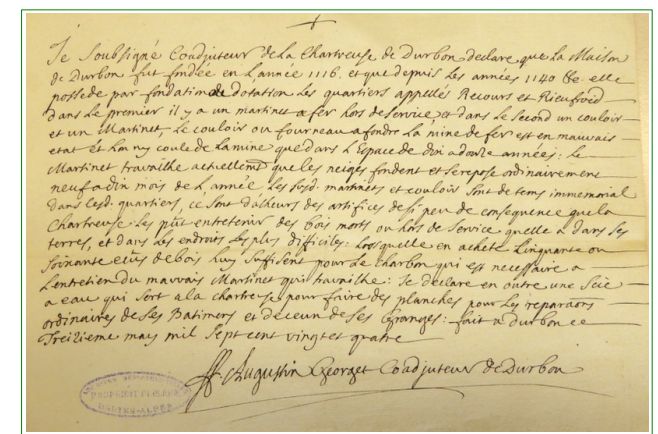 Je Soubsigné Coadjuteur de la Chartreuse de Durbon declare que La Maison
de Durbon fut fondée en L'année 1116. et que depuis Les années 1140 &c elle
possede par fondation de dotation Les quartiers appellés Recours et Rieufroid
dans Le premier il y a un martinet a fer hors de service, et dans Le second un couloir
et un Martinet, Le couloir ou fourneau a fondre La mine de fer est en mauvais
etat et Lon ny coule de La mine que dans L'Espace de dix a douze années; Le
Martinet travailhe actuellement que les neiges fondent et se repose ordinairement
neuf a dix mois de L'année, Les susd. martinets et couloir sont de tems immemorial
dans Lesd. quartiers, ce sont d'alheurs des artifices de si peu de consequence que la
Chartreuse Les put entretenir des bois morts ou hors de service quelle a dans ses
terres, et dans Les endroits Les plus difficiles: Lors quelle en achete Cinquante ou
soixante ecus de bois Luy suffisent pour Le charbon qui est necessaire a
L'entretien du mauvais Martinet qui travailhe: Je declare en outre une Scie
a eau qui sert a la chartreuse pour faire des planches pour Les reparaons
ordinaires de ses Batimens et de ceux de ses Granges: fait a durbon ce
Treizieme may mil sept cent vingt et quatre
ff. Augustin Georget Coadjuteur de Durbon
HAUTES-ALPES